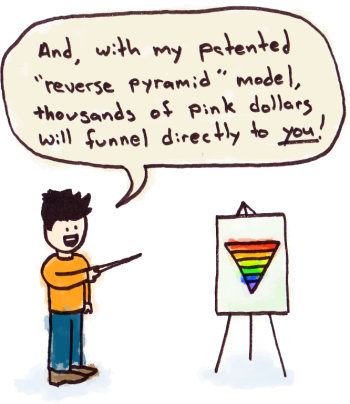 And, with my patented
"reverse pyramid" model,
thousands of pink dollars
will funnel directly to you!